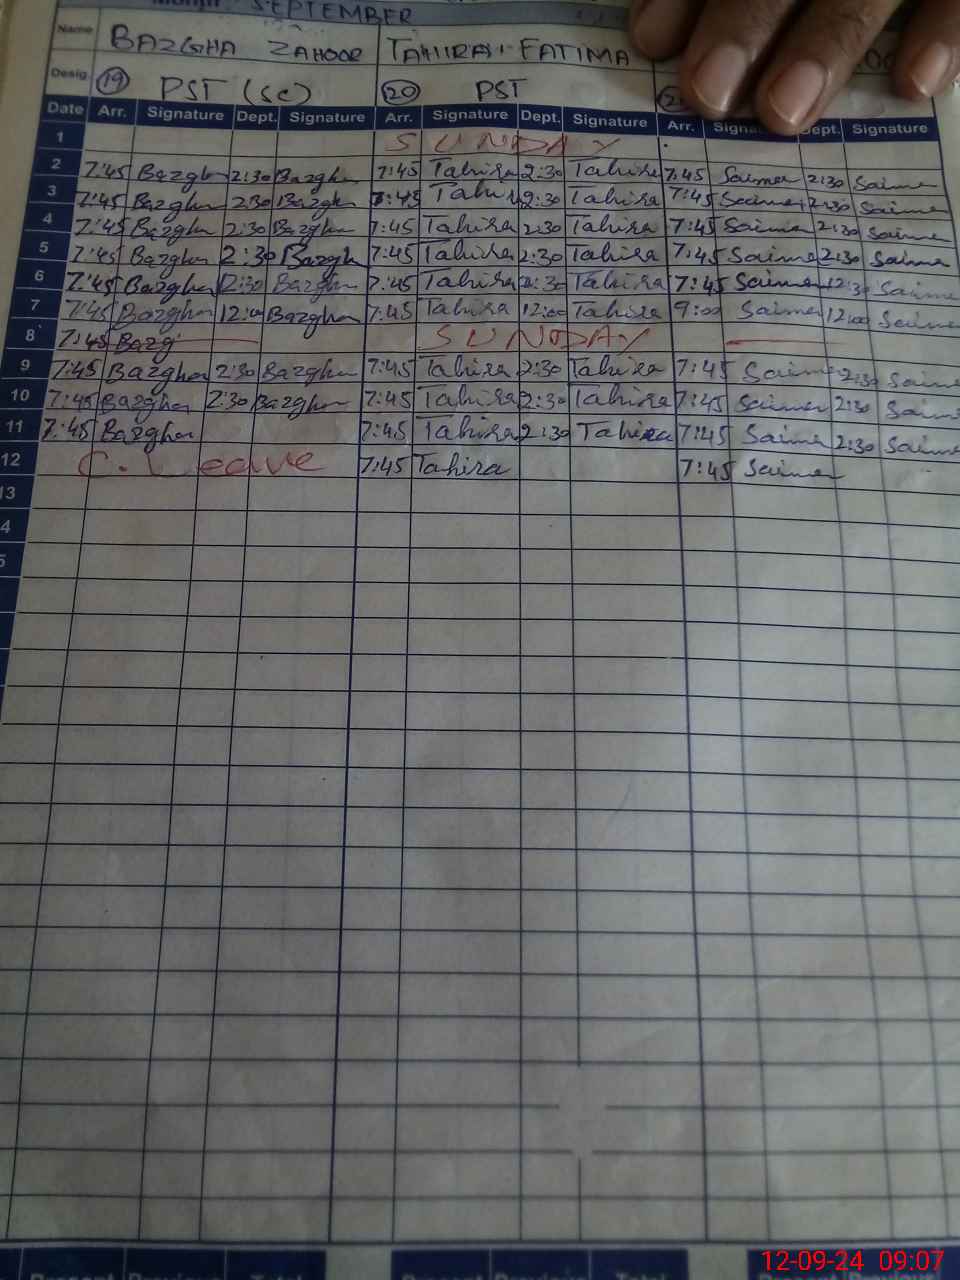 SEPTEMBER
Name BAZGHA ZAHOOR TAHIRA FATIMA
Desig. 19 PST (SC) 20 PST
Date Arr. Signature Dept. Signature Arr. Signature Dept. Signature Arr. Dept. Signature
1 SUNDAY
2 7:45 Bazgha 2:30 Bazgha 7:45 Tahira 2:30 Tahira 7:45 Saima 2:30 Saima
3 7:45 Bazgha 2:30 Bazgha 7:45 Tahira 2:30 Tahira 7:45 Saima 2:30 Saima
4 7:45 Bazgha 2:30 Bazgha 7:45 Tahira 2:30 Tahira 7:45 Saima 2:30 Saima
5 7:45 Bazgha 2:30 Bazgha 7:45 Tahira 2:30 Tahira 7:45 Saima 2:30 Saima
6 7:45 Bazgha 12:30 Bazgha 7:45 Tahira 12:30 Tahira 7:45 Saima 12:30 Saima
7 7:45 Bazgha 12:00 Bazgha 7:45 Tahira 12:00 Tahira 9:00 Saima 12:00 Saima
8 7:45 Bazg SUNDAY
9 7:45 Bazgha 2:30 Bazgha 7:45 Tahira 2:30 Tahira 7:45 Saima 2:30 Saima
10 7:45 Bazgha 2:30 Bazgha 7:45 Tahira 2:30 Tahira 7:45 Saima 2:30 Saima
11 7:45 Bazgha 7:45 Tahira 2:30 Tahira 7:45 Saima 2:30 Saima
12 C. Leave 7:45 Tahira 7:45 Saima
13
4
5
12-09-24 09:07